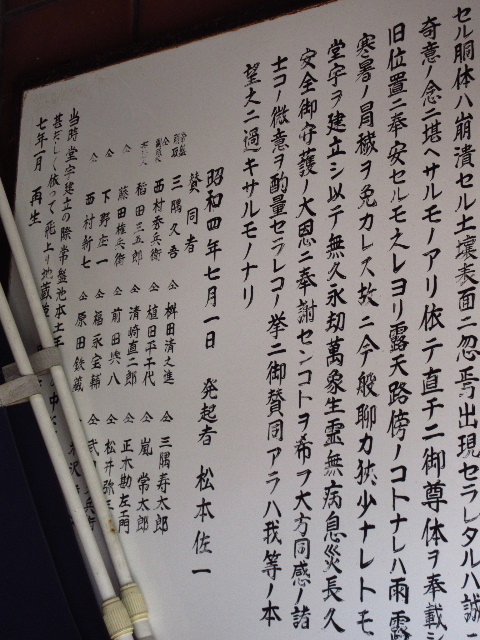 セル胴体ハ崩潰セル土壌表面ニ忽焉出現セラレタルハ誠ニ
奇意ノ念ニ堪ヘサルモノアリ依テ直チニ御尊体ヲ奉載
旧位置ニ奉安セルモ之レヨリ露天路傍ノコトナレハ雨露
寒暑ノ冒穢ヲ免カレス故ニ今般聊カ狭少ナレトモ
堂宇ヲ建立シ以テ無久永劫萬象生霊無病息災長久
安全御守護ノ大恩ニ奉謝センコトヲ希ヲ大方同感ノ諸
士コノ微意ヲ酌量セラレコノ挙ニ御賛同アラハ我等ノ本
望之ニ過キサルモノナリ
昭和四年七月一日 発起者 松本佐一
賛同者
三隅久吾 仝 桝田清之進 仝 三隅寿太郎
西村秀兵衛 仝 植田平千代 仝 嵐常太郎
稲田三五郎 仝 清崎直二郎 仝 正木勘左エ門
仝 藤田権兵衛 仝 前田㷀八 仝 松井弥三
仝 下野庄一 仝 福永宝輔 仝 武
仝 西村新七 仝 原田鉄蔵 沢
当時堂宇建立の際常盤池本土手
甚だしく依って
七年一月 再生